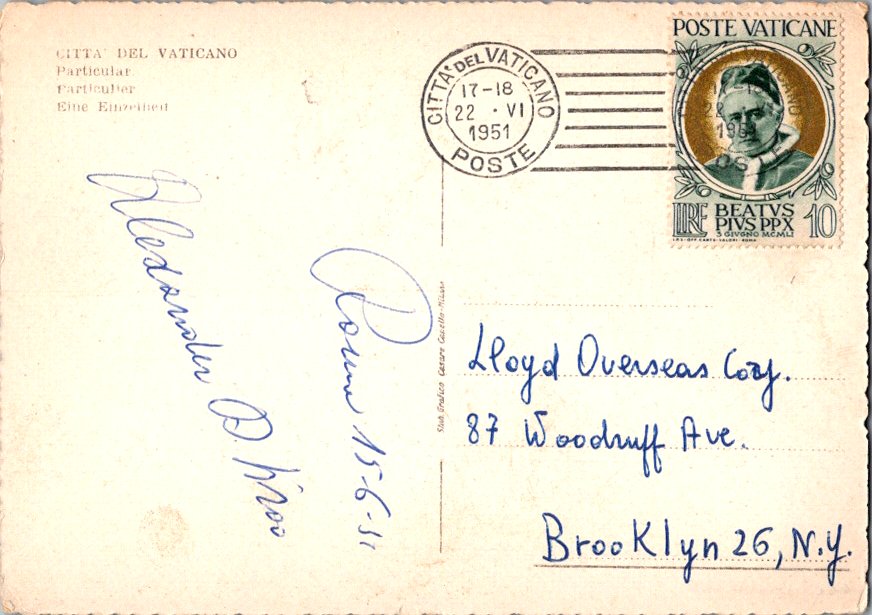 CITTA' DEL VATICANO
Particular
Particulier
Eine Einzelheit
CITTA' DEL VATICANO
17-18
22 · VI
1951
POSTE
POSTE VATICANE
LIRE BEATVS PIVS PPX 10
3 GIVGNO MCMLI
I.P.S-OFF. CARTE-VALORI-ROMA
Alexander D.
Rome 15-6-51
Stab. Grafico Cesare Capello-Milano
Lloyd Overseas Corp.
87 Woodruff Ave.
Brooklyn 26, N.Y.